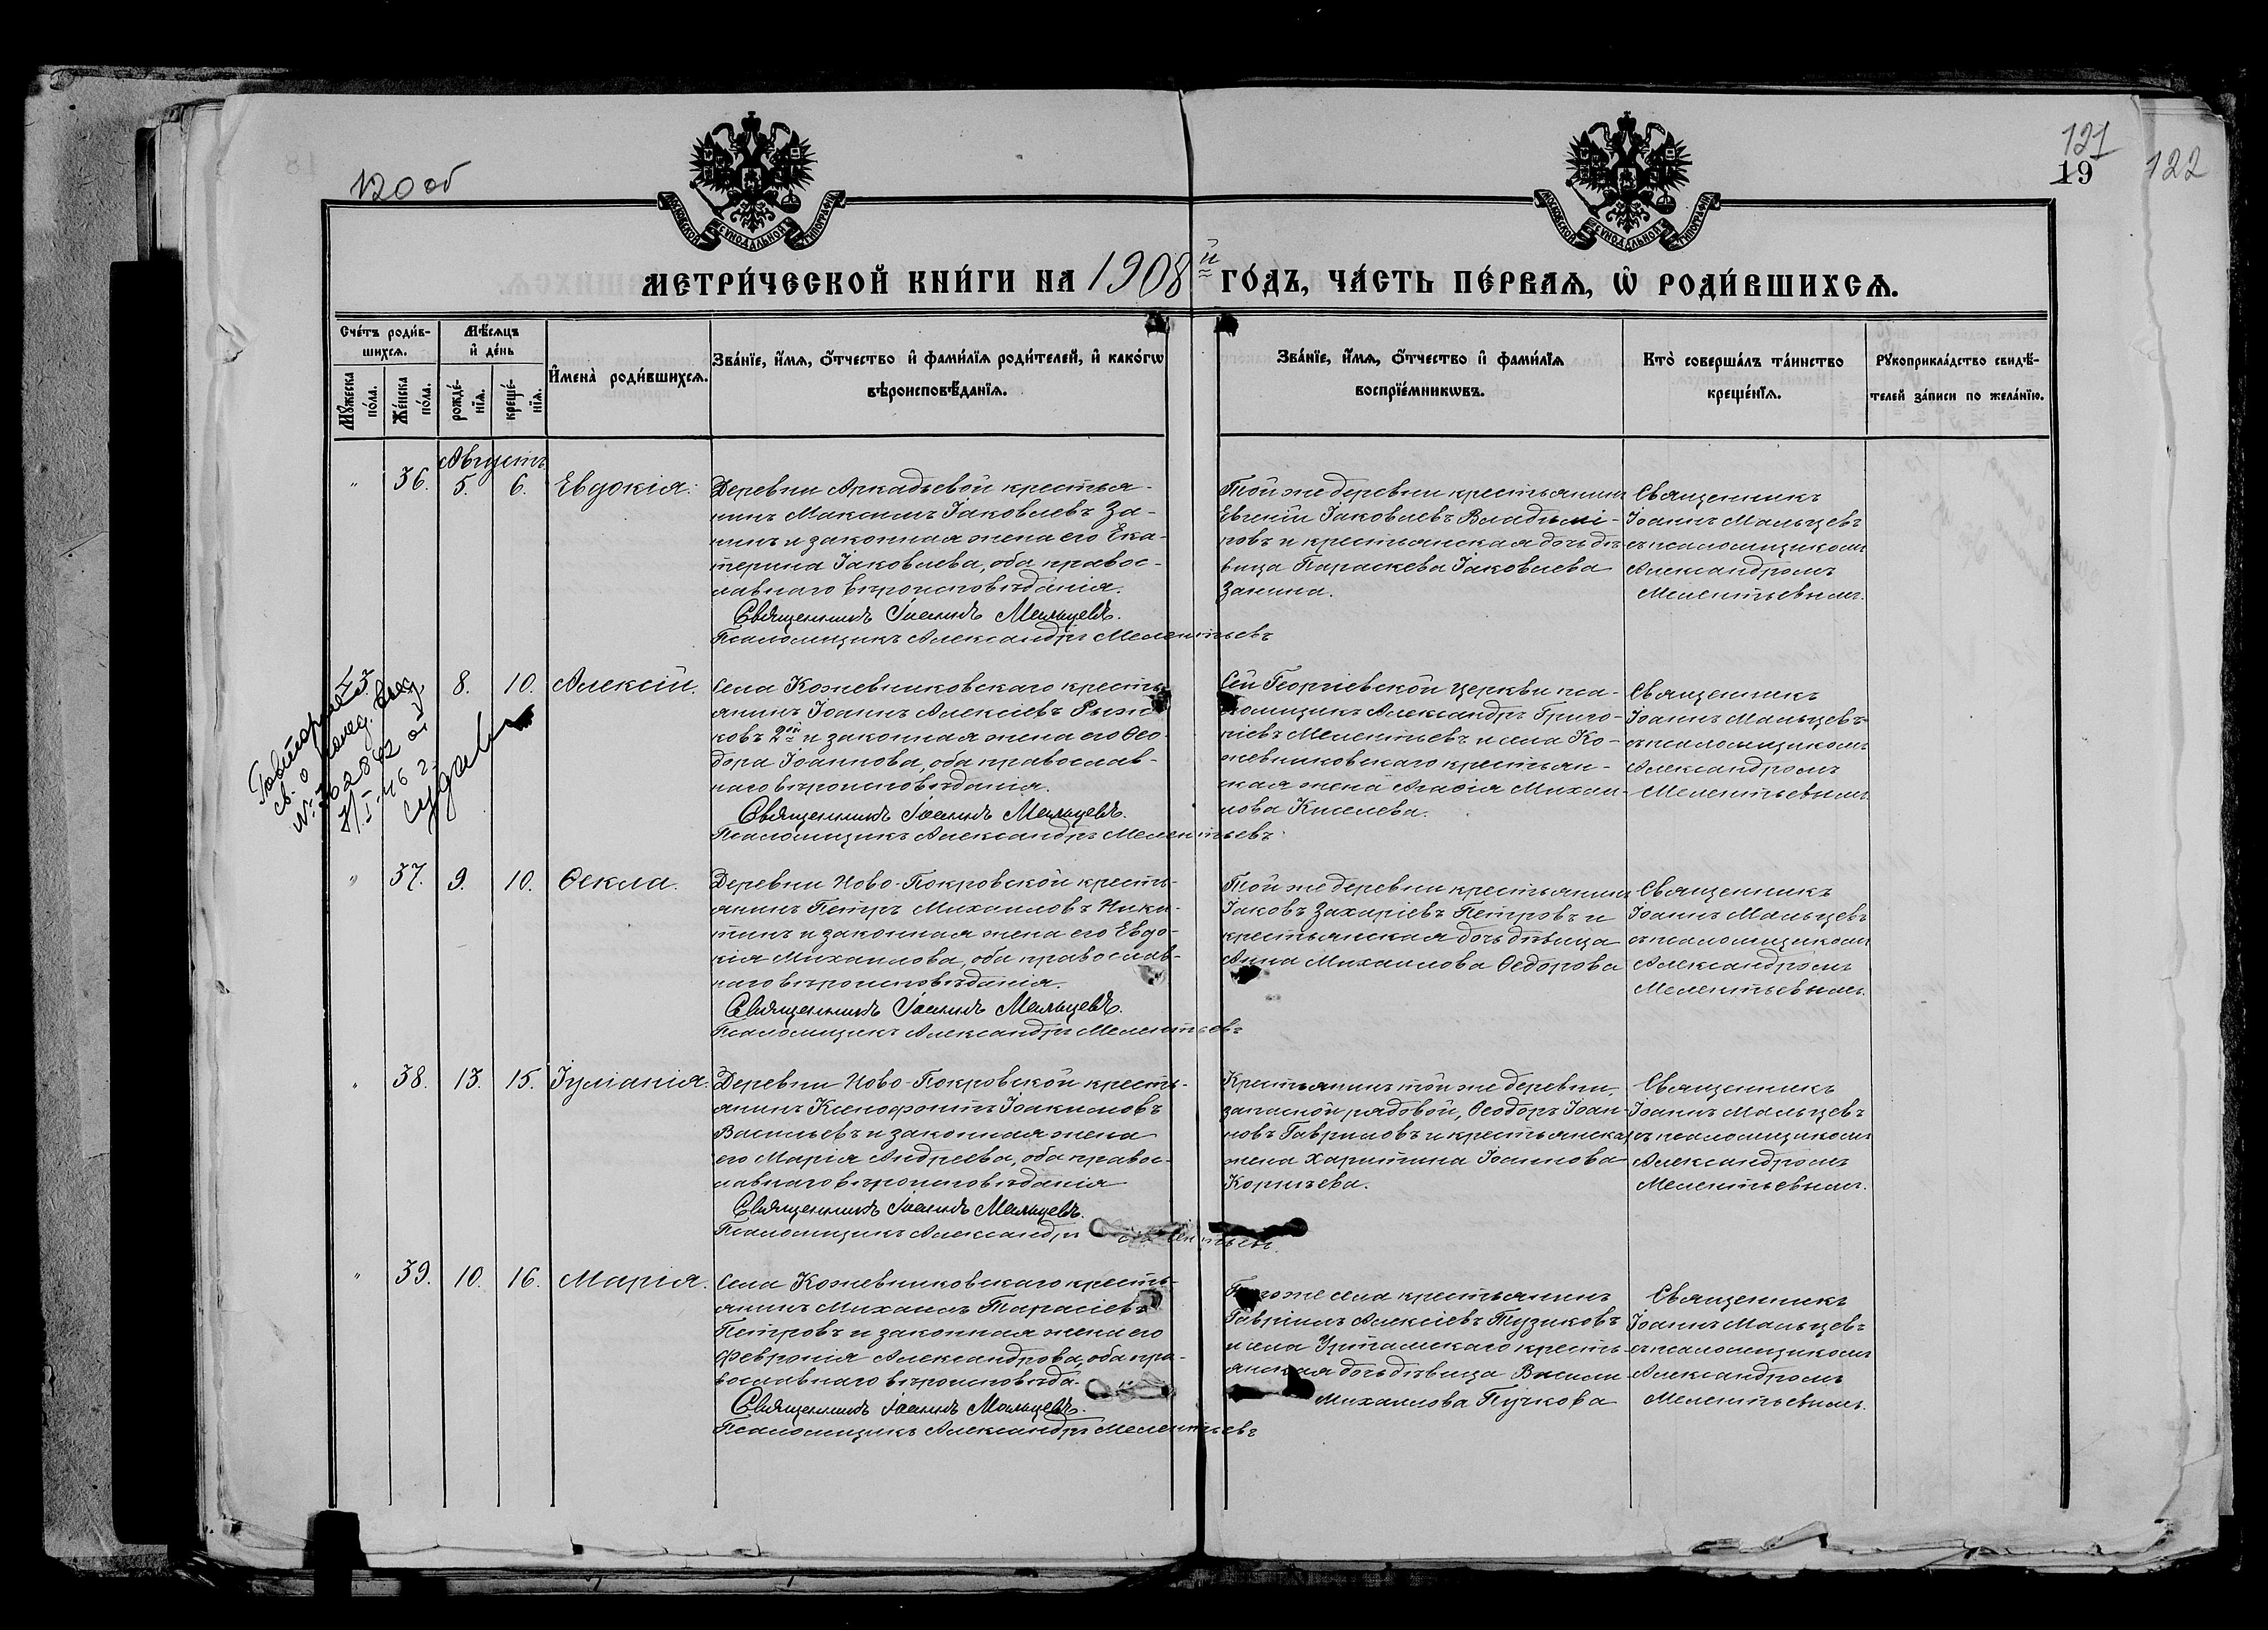 120 об
121
19
122
МОСКОВСКОЙ СУНОДАЛЬНОЙ ТИПОГРАФІИ
МОСКОВСКОЙ СУНОДАЛЬНОЙ ТИПОГРАФІИ
МЕТРИ́ЧЕСКОЙ КНИ́ГИ НА 1908й ГО́ДЪ, ЧА́СТЬ ПЕ́РВАѦ, Ѡ҆ РОДИ́ВШИХСѦ.
Сче́тъ роди́в-
шихсѧ.
Мꙋ́жеска по́ла.
Же́нска по́ла.
Мѣ́сѧцъ
и҆ де́нь
рожде́-
нїѧ.
креще́-
нїѧ.
И҆мена̀ роди́вшихсѧ.
Зва́нїе, и҆́мѧ, ѻ҆́тчество и҆ фами́лїѧ роди́телей, и҆ како́гѡ
вѣроисповѣ́данїѧ.
Зва́нїе, и҆́мѧ, ѻ҆́тчество и҆ фами́лїѧ
воспрїе́мникѡвъ.
Кто̀ соверша́лъ та́инство
креще́нїѧ.
Рꙋкоприкла́дство свидѣ́-
телей за́писи по жела́нїю.
Августъ
" 36. 5. 6. Евдокія.
Деревни Аркадьевой крестья-
нинъ Максимъ Іаковлевъ За-
нинъ и законная жена его Ека-
терина Іаковлева, оба правос-
лавнаго вѣроисповѣданія.
Священникъ Іоаннъ Мальцевъ.
Псаломщикъ Александръ Мелентьевъ
Той же деревни крестьянинъ
Евгеній Іаковлевъ Владимі-
ровъ и крестьянская дочь дѣ-
вица Параскева Іаковлева
Занина.
Священникъ
Іоаннъ Мальцевъ
съ псаломщикомъ
Александромъ
Мелентьевымъ.
Повторное
св. о рожд.
№ 362842 от
8/I-46 г.
43. 8. 10. Алексій.
Села Кожевниковскаго кресть-
янинъ Іоаннъ Алексіевъ Рыж-
ковъ 2ой и законная жена его Ѳео-
дора Іоаннова, оба православ-
наго вѣроисповѣданія.
Священникъ Іоаннъ Мальцевъ.
Псаломщикъ Александръ Мелентьевъ.
Сей Георгіевской церкви пса-
ломщикъ Александръ Григо-
ріевъ Мелентьевъ и села Ко-
жевниковскаго крестьян-
ская жена Агафія Михаи-
лова Киселева.
Священникъ
Іоаннъ Мальцевъ
съ псаломщикомъ
Александромъ
Мелентьевымъ.
" 37. 9. 10. Ѳекла.
Деревни Ново-Покровской кресть-
янинъ Петръ Михаиловъ Ники-
тинъ и законная жена его Евдо-
кія Михаилова, оба православ-
наго вѣроисповѣданія.
Священникъ Іоаннъ Мальцевъ.
Псаломщикъ Александръ Мелентьевъ
Той же деревни крестьянинъ
Іаковъ Захаріевъ Петровъ и
крестьянская дочь дѣвица
Анна Михаилова Ѳедорова
Священникъ
Іоаннъ Мальцевъ
съ псаломщикомъ
Александромъ
Мелентьевымъ.
" 38. 13. 15. Іуліанія.
Деревни Ново-Покровской кресть-
янинъ Ксенофонтъ Іоакимовъ
Васильевъ и законная жена
его Марія Андреева, оба правос-
лавнаго вѣроисповѣданія
Священникъ Іоаннъ Мальцевъ.
Псаломщикъ Александръ Мелентьевъ.
Крестьянинъ той же деревни,
запасной рядовой, Ѳеодоръ Іоан-
новъ Гавриловъ и крестьянская
жена Харитина Іоаннова
Корнѣева.
Священникъ
Іоаннъ Мальцевъ
съ псаломщикомъ
Александромъ
Мелентьевымъ.
" 39. 10. 16. Марія.
Села Кожевниковскаго кресть-
янинъ Михаилъ Тарасіевъ
Петровъ и законная жена его
Февронія Александрова, оба пра-
вославнаго вѣроисповѣда-
Священникъ Іоаннъ Мальцевъ.
Псаломщикъ Александръ Мелентьевъ
Того же села крестьянинъ
Гавріилъ Алексіевъ Тузиковъ
и села Уртамскаго кресть-
янская дочь дѣвица Васили-
Михаилова Пучкова
Священникъ
Іоаннъ Мальцевъ
съ псаломщикомъ
Александромъ
Мелентьевымъ.